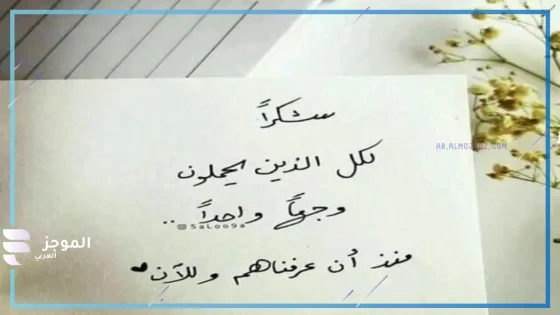 شكراً
لكل الذين يحملون
وجهاً واحداً ..
@5aloo9a
منذ أن عرفناهم وللآن
AR.ALMOJAZ.COM
الموجز
العربي